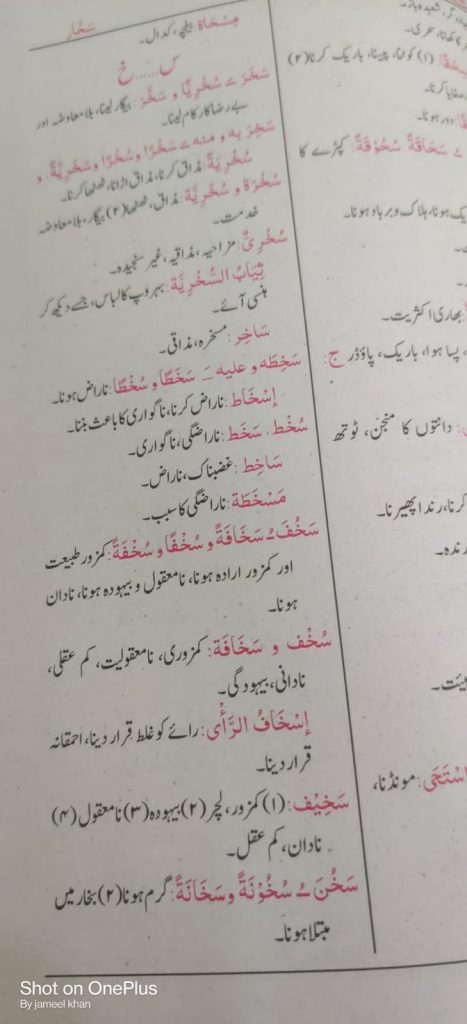 سَحَّار
مِسْحَاة: بیلچہ، کدال۔
س……خ
سَخَرَ ــَـ سُخْرِيًّا و سَخَّرَ: بیگار لینا، بلا معاوضہ اور
بے رضا کار کام لینا۔
سَخِرَ به و منه ــَـ سَخَرًا و سُخْرًا و سُخْرِيَّةً، و
سُخْرِيَةً: مذاق کرنا، مذاق اڑانا، ٹھٹھا کرنا۔
سُخْرَة و سُخْرِيَّة: مذاق، ٹھٹھا (۲) بیگار، بلا معاوضہ
خدمت۔
سُخْرِیٌّ: مزاحیہ، مذاقیہ، غیر سنجیدہ۔
ثِيَابُ السُّخْرِيَّة: بہروپ کا لباس، جسے دیکھ کر
ہنسی آئے۔
سَاخِر: مسخرہ، مذاقی۔
سَخِطَه و عليه ــَـ سَخَطًا و سُخْطًا: ناراض ہونا۔
إِسْخَاط: ناراض کرنا، ناگواری کا باعث بننا۔
سُخْط، سَخَط: ناراضگی، ناگواری۔
سَاخِط: غضبناک، ناراض۔
مَسْخَطَة: ناراضگی کا سبب۔
سَخُفَ ــُـ سَخَافَةً و سُخْفًا و سُخْفَةً: کمزور طبیعت
اور کمزور ارادہ ہونا، نامعقول و بیہودہ ہونا، نادان
ہونا۔
سُخْف و سَخَافَة: کمزوری، نامعقولیت، کم عقلی،
نادانی، بیہودگی۔
إِسْخَافُ الرَّأْی: رائے کو غلط قرار دینا، احمقانہ
قرار دینا۔
سَخِيْف: (۱) کمزور، لچر (۲) بیہودہ (۳) نامعقول (۴)
نادان، کم عقل۔
سَخُنَ ــُـ سُخُوْنَةً و سَخَانَةً: گرم ہونا (۲) بخار میں
مبتلا ہونا۔
(۱) کوٹنا، پیسنا، باریک کرنا (۲)
صفایا کرنا۔
دور ہونا۔
ــُـ سَحَاقَةً سُحُوْقَةً: کپڑے کا
ہونا، ہلاک و برباد ہونا۔
بھاری اکثریت۔
پسا ہوا، باریک، پاؤڈر ج:
دانتوں کا منجن، ٹوتھ
کرنا، رندا پھیرنا۔
رندہ۔
مونڈنا،
Shot on OnePlus
By jameel khan